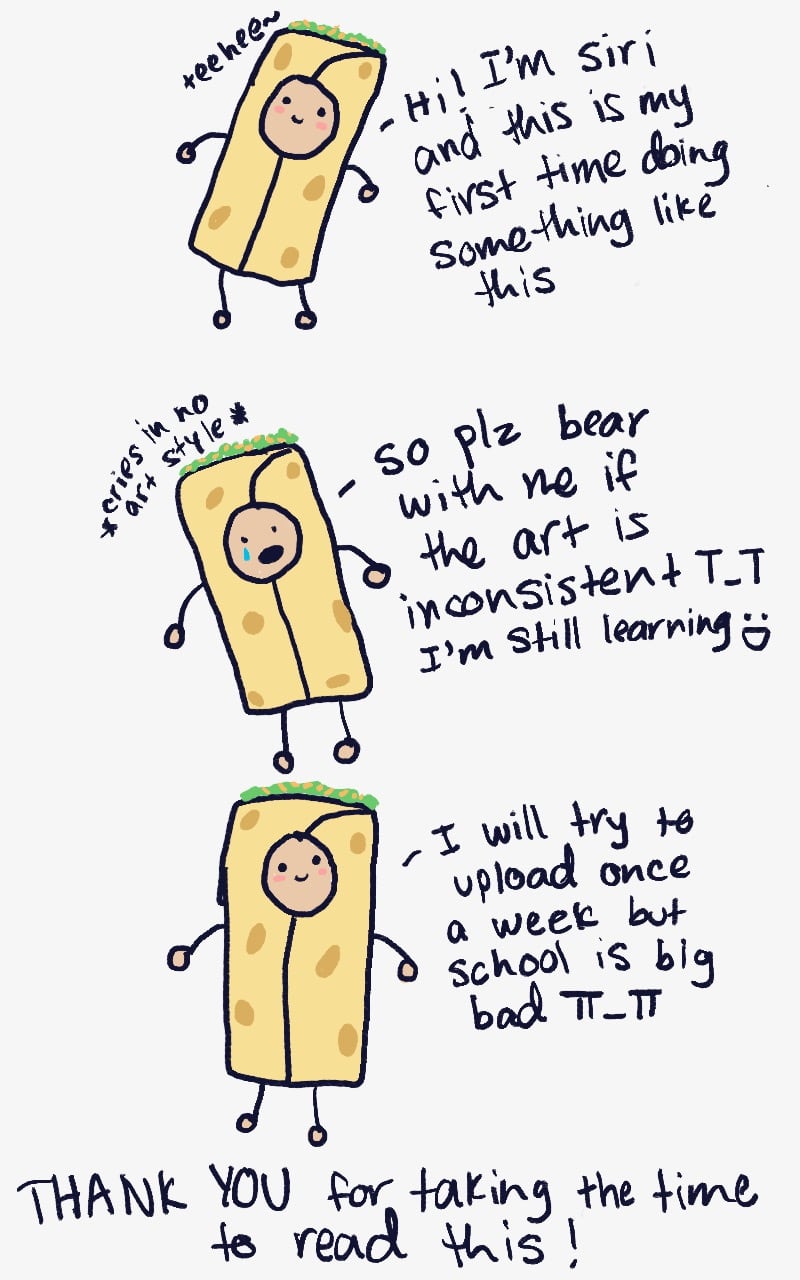 *eehee~
Hi! I'm siri
and this is my
first time doing
something like
this
*cries in no
art style*
so plz bear
with me if
the art is
inconsistent T_T
I'm still learning :D
I will try to
upload once
a week but
school is big
bad TT_TT
THANK YOU for taking the time
to read this!